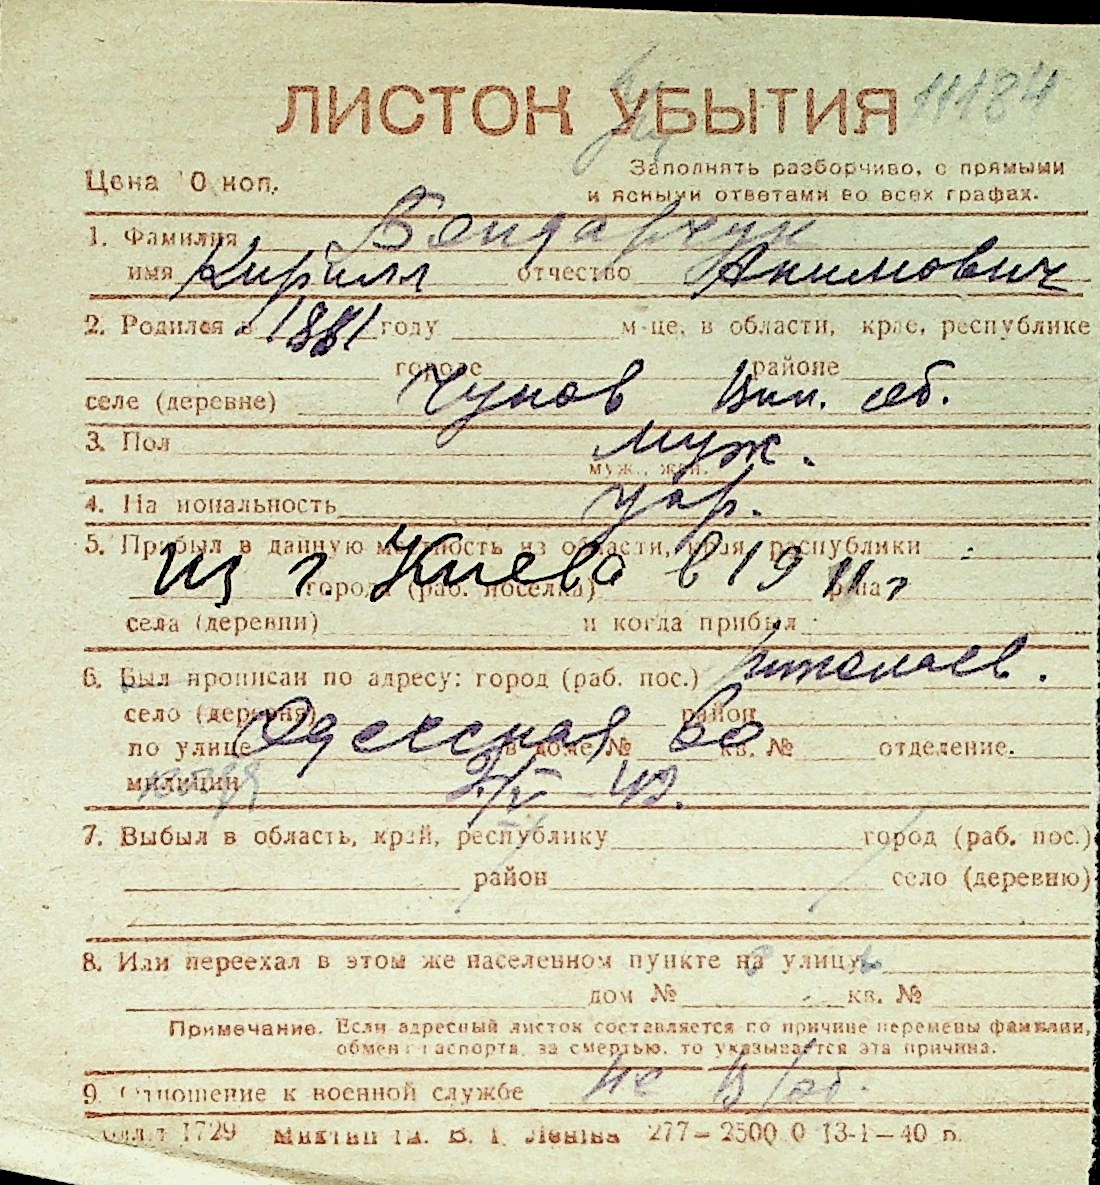 ЛИСТОК УБЫТИЯ 11184
Цена 10 коп.
Заполнять разборчиво, с прямыми
и ясными ответами во всех графах.
1. Фамилия Бондарчук
имя Кирилл отчество Акимович
2. Родился в 1881 году м-це, в области, крае, республике
городе районе
селе (деревне) Чунов Вин. об.
3. Пол муж.
муж., жен.
4. Национальность укр.
5. Прибыл в данную местность из области, края, республики
из г. Киева в 19 11 г
города (раб. поселка)
села (деревни) и когда прибыл
6. Был прописан по адресу: город (раб. пос.)
село (деревня) район
по улице Одесская в доме № 60 кв. № отделение.
милиции
7. Выбыл в область, край, республику город (раб. пос.)
район село (деревню)
8. Или переехал в этом же населенном пункте на улицу
дом № кв. №
Примечание. Если адресный листок составляется по причине перемены фамилии,
обмен паспорта, за смертью, то указывается эта причина.
9. Отношение к военной службе не в/об.
1729 им. В. І. Леніна 277—2500 0 13-1—40 р.